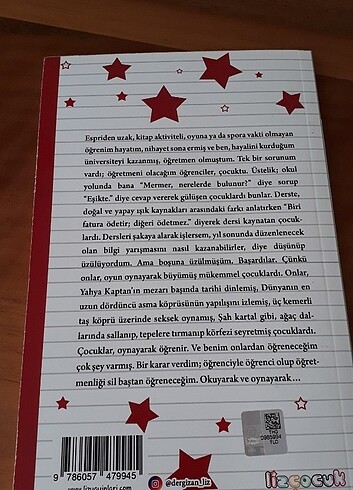 Espriden uzak, kitap aktiviteli, oyuna ya da spora vakti olmayan
öğrenim hayatım, nihayet sona ermiş ve ben, hayalini kurduğum
üniversiteyi kazanmış, öğretmen olmuştum. Tek bir sorunum
vardı; öğretmeni olacağım öğrenciler, çocuktu. Üstelik; okul
yolunda bana "Mermer, nerelerde bulunur?" diye sorup
"Eşikte." diye cevap vererek gülüşen çocuklardı bunlar. Derste,
doğal ve yapay ışık kaynakları arasındaki farkı anlatırken "Biri
fatura ödetir; diğeri ödetmez." diyerek dersi kaynatan çocuk-
lardı. Dersleri şakaya alarak işlersem, yıl sonunda düzenlenecek
olan bilgi yarışmasını nasıl kazanabilirler, diye düşünüp
üzülüyordum. Ama boşuna üzülmüşüm. Başardılar. Çünkü
onlar, oyun oynayarak büyümüş mükemmel çocuklardı. Onlar,
Yahya Kaptan'ın mezarı başında tarihi dinlemiş, Dünyanın en
uzun dördüncü asma köprüsünün yapılışını izlemiş, üç kemerli
taş köprü üzerinde seksek oynamış, Şah kartal gibi, ağaç dal-
larında sallanıp, tepelere tırmanıp körfezi seyretmiş çocuklardı.
Çocuklar, oynayarak öğrenir. Ve benim onlardan öğreneceğim
çok şey varmış. Bir karar verdim; öğrenciyle öğrenci olup öğret-
menliği sil baştan öğreneceğim. Okuyarak ve oynayarak…
9 786057 479945
@dergizan_liz
lizçocuk